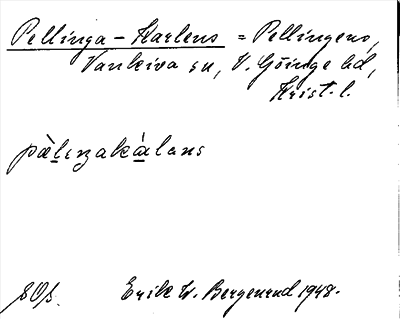 Pellinga-Karlens = Pellingens,
Vankiva sn, V. Göinge hd,
Krist. l.
pàlıŋakàlans
Erik W. Bergenrud 1948.